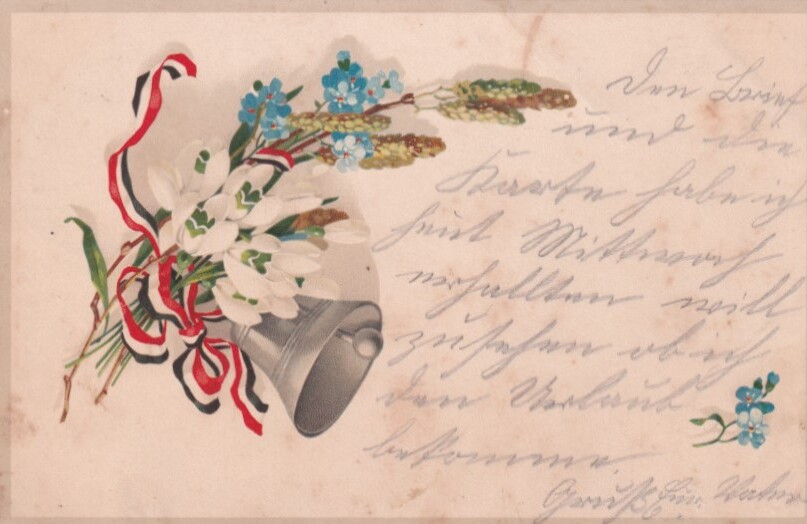 Den Brief
und die
Karte habe ich
heut Mittwoch
erhallten will
zusehen ob ich
den Urlaub
bekomme
Gruß Eur. Vater